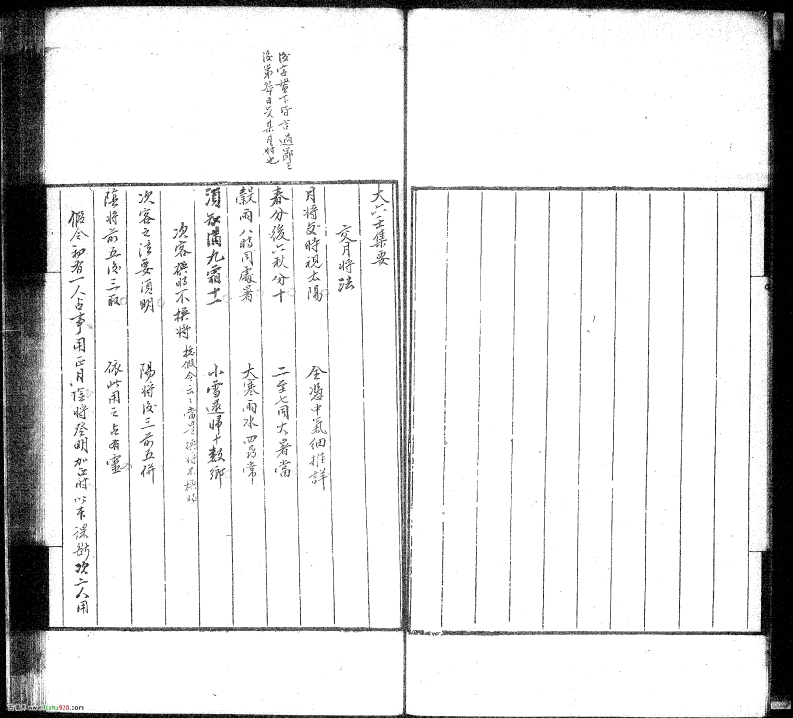 後字當下所言過節之
後第幾日交某月將也
大六壬集要
交月將法
月將交時視太陽 全憑中氣細推詳
春分後六秋分十 二至七同大暑當
穀雨八時同處暑 大寒雨水四為常
須知滿九霜十一 小雪還歸十數鄉
次客換時不換將 按假令云云當是換將不換時
次客之法要須明 陽將後三前五併
陰將前五後三取 依此用之占有靈
假令初有一人占事用正月陰將登明加正時以本課斷次二人用